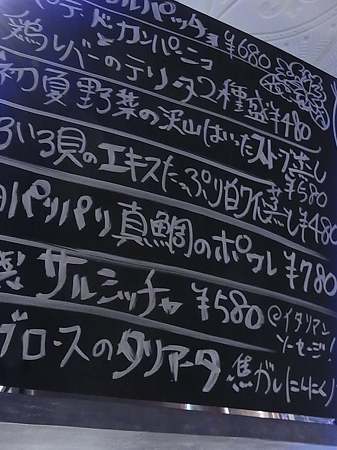 ルパッチョ ¥680
パテ・ド・カンパーニュ
鶏レバーのテリーヌ 2種盛 ¥480
初夏野菜の沢山はいったストーブ蒸し ¥580
いろいろ貝のエキスたっぷり白ワイン蒸し ¥480
パリパリ真鯛のポワレ ¥780
製 サルシッチャ ¥580 @イタリアンソーセージ!
ロースのタリアータ 焦がしにんにく